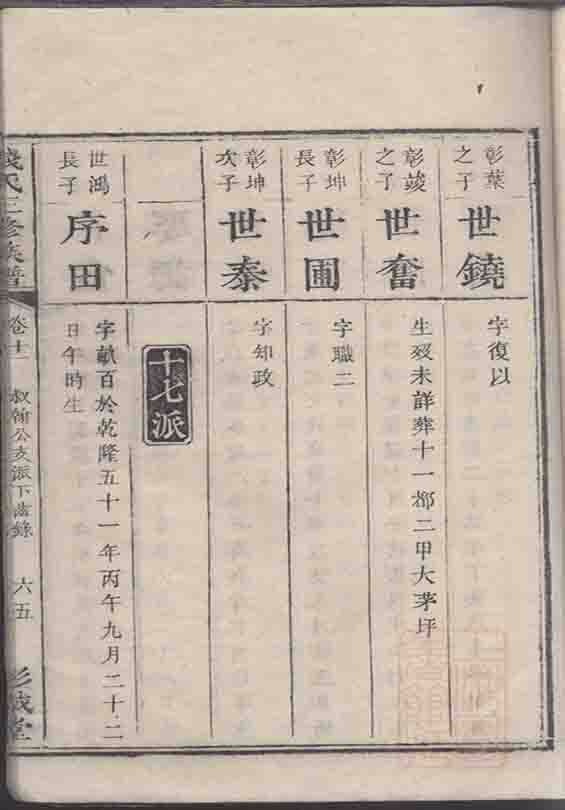 彰葉之子
世鐃
字復以
彰竣之子
世奮
生殁未詳葬十一都二甲大茅坪
彰坤長子
世圃
字職二
彰坤次子
世泰
字知政
十七派
世鴻長子
序田
字猷百於乾隆五十一年丙午九月二十二
日午時生
氏三修族譜
卷十二
叔翰公支派下齒錄
六五
彭城堂